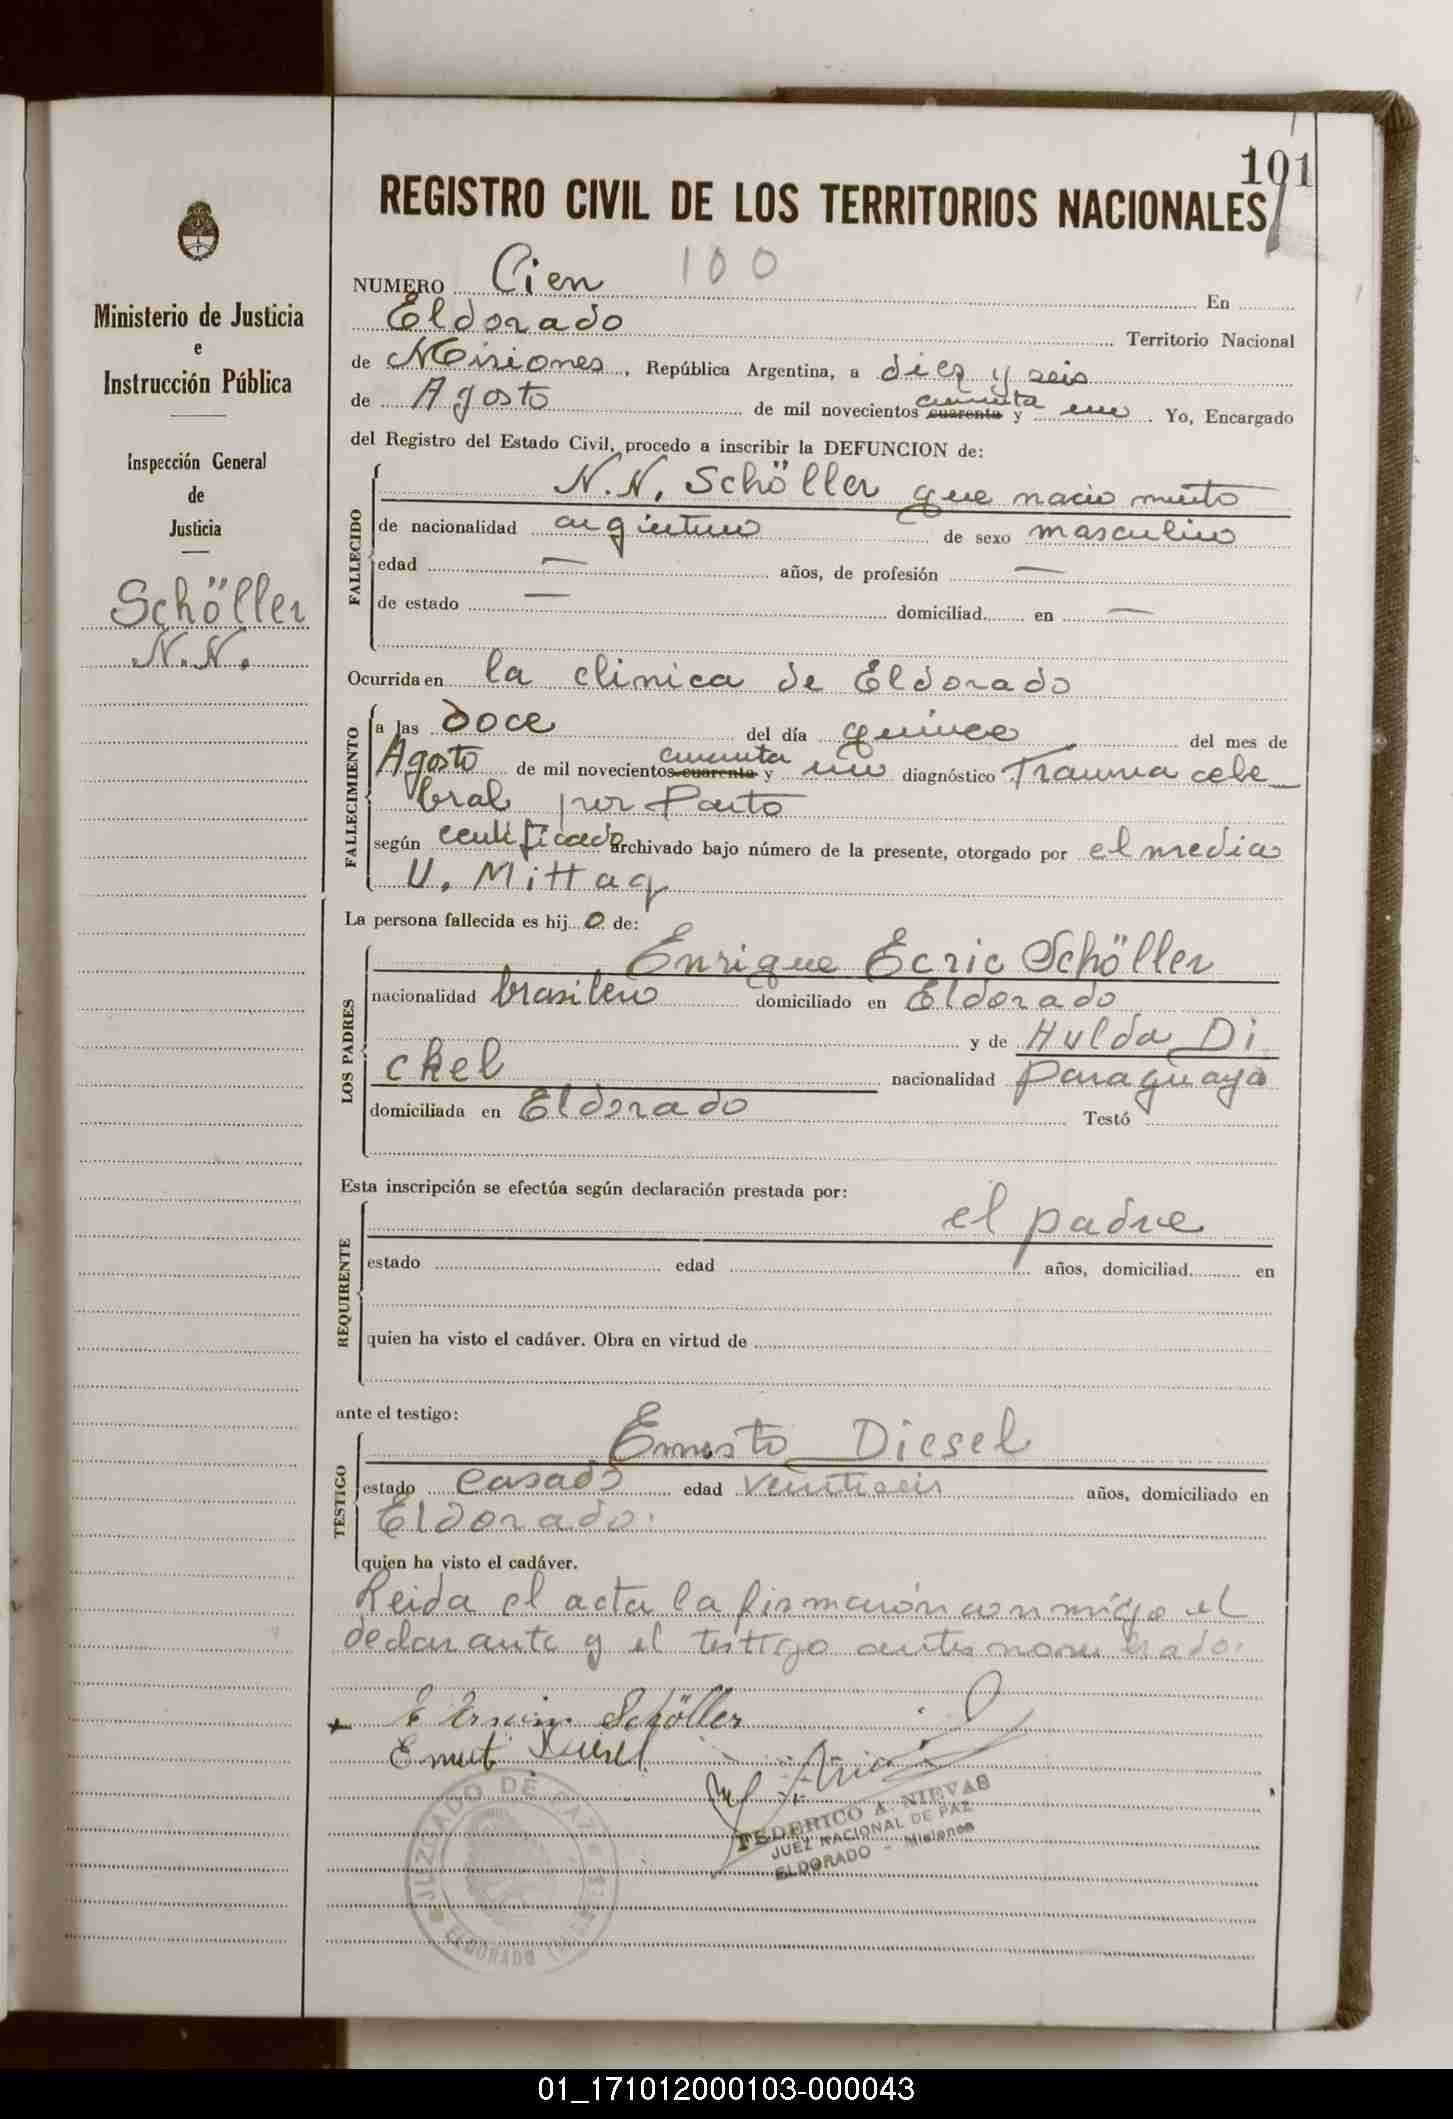 101
REGISTRO CIVIL DE LOS TERRITORIOS NACIONALES
Ministerio de Justicia
e
Instrucción Pública
Inspección General
de
Justicia
Schöller
N.N.
NUMERO Cien 100 En
Eldorado Territorio Nacional
de Misiones, República Argentina, a diez y seis
de Agosto de mil novecientos cuarenta cincuenta y uno. Yo, Encargado
del Registro del Estado Civil, procedo a inscribir la DEFUNCION de:
FALLECIDO
N.N. Schöller que nacio muerto
de nacionalidad argentino de sexo masculino
edad — años, de profesión —
de estado — domiciliad en —
Ocurrida en la clinica de Eldorado
FALLECIMIENTO
a las doce del día quince del mes de
Agosto de mil novecientos cuarenta cincuenta y uno diagnóstico Trauma cele
bral por Parto
según certificado archivado bajo número de la presente, otorgado por el medico
U. Mittag
La persona fallecida es hijo de:
LOS PADRES
Enrique Schöller
nacionalidad brasilero domiciliado en Eldorado
y de Hulda Di
ckel nacionalidad Paraguaya
domiciliada en Eldorado Testó
Esta inscripción se efectúa según declaración prestada por:
REQUIRENTE
el padre
estado edad años, domiciliad en
quien ha visto el cadáver. Obra en virtud de
ante el testigo:
TESTIGO
Ernesto Diesel
estado casado edad veintiseis años, domiciliado en
Eldorado.
quien ha visto el cadáver.
Leida el acta la firmaron conmigo el
declarante y el testigo antes nombrado.
E Erwin Schöller
Ernst Diesel
FEDERICO A. NIEVAS
JUEZ NACIONAL DE PAZ
ELDORADO - Misiones
JUZGADO DE PAZ
ELDORADO
01_171012000103-000043